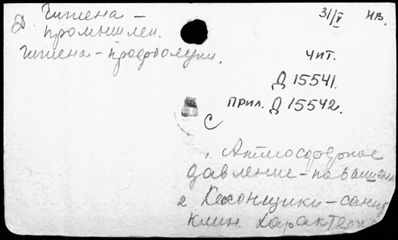 Гигиена –
промышлен.
31/V нв.
Гигиена – продовольств.
Чит.
Д 15541.
Прил. Д 15542.
С
1. Атмосферное
давление – повышен
2 Кессонщики – сани
клин. характер